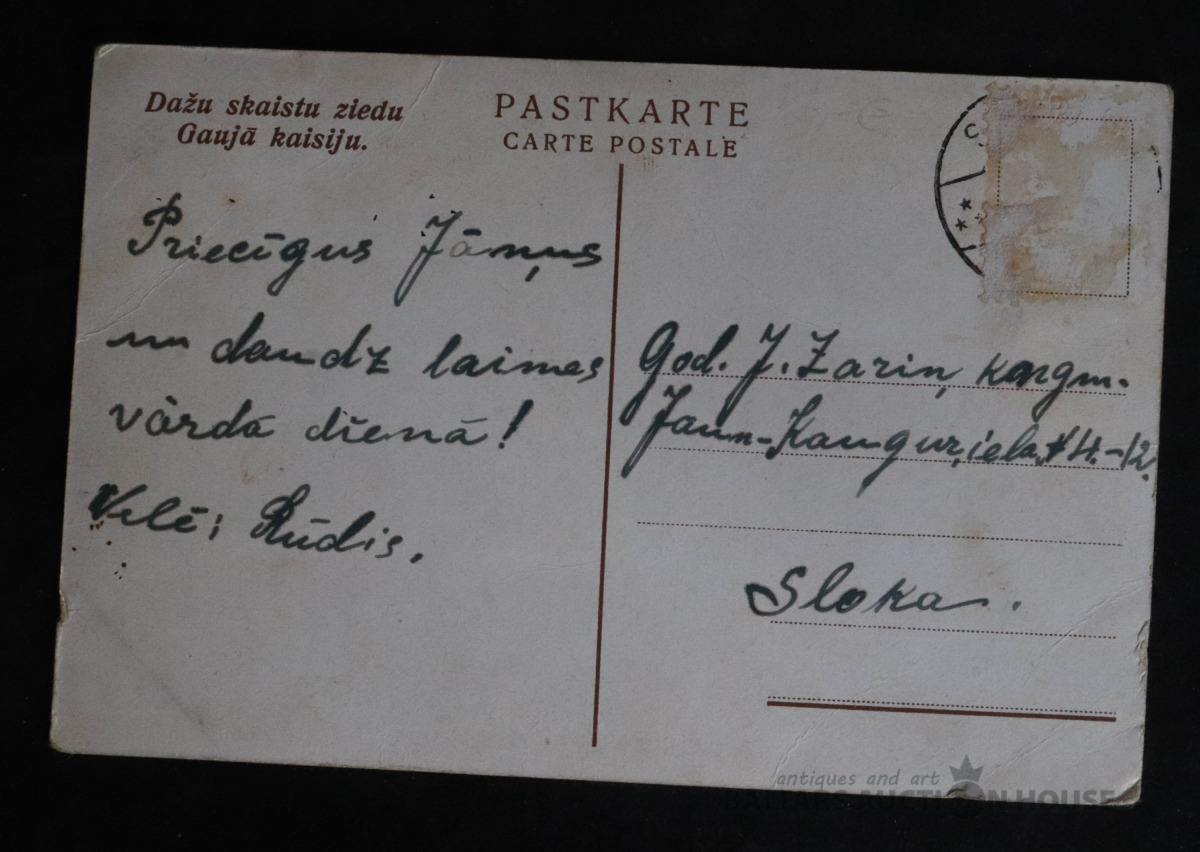 Dažu skaistu ziedu
Gaujā kaisiju.
PASTKARTE
CARTE POSTALE
Priecīgus Jāņus
un daudz laimes
vārda dienā!
Vēlē: Rūdis.
God. J. Zariņ kungm.
Jaun-Kaugur, iela, 14.-12.
Sloka.
antiques and art
BALTARS AUCTION HOUSE